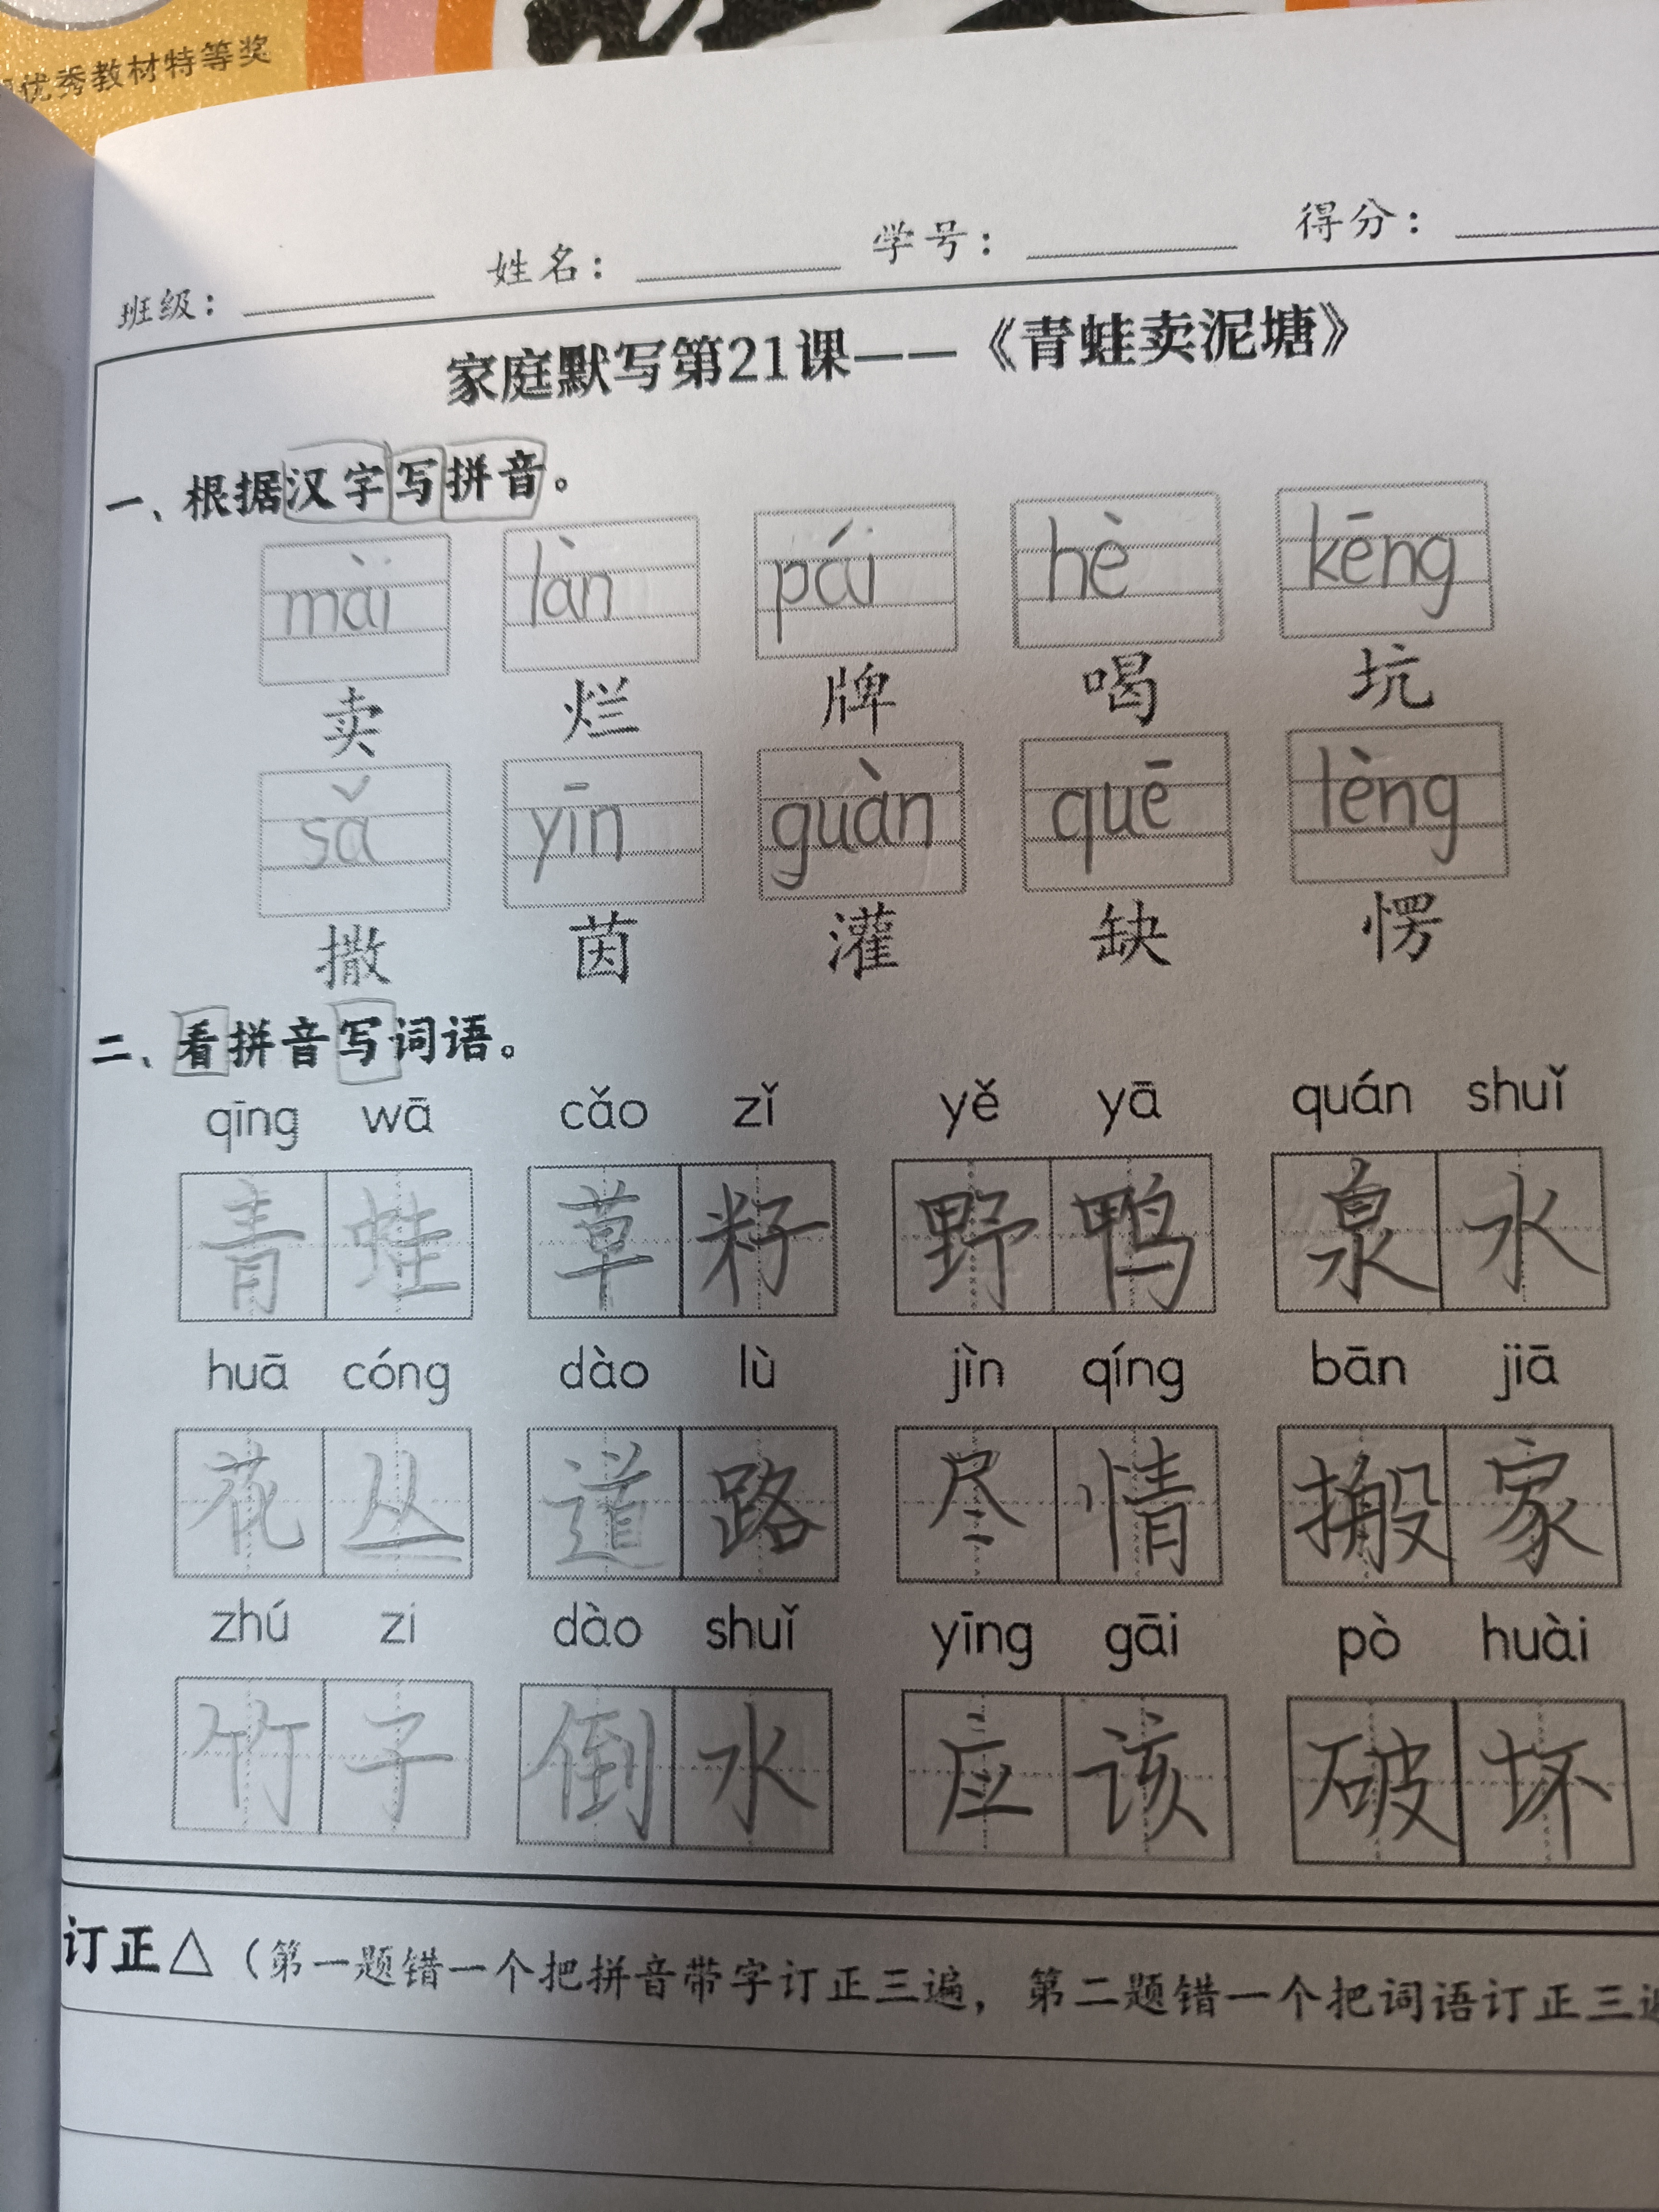 优秀教材特等奖
班级： 姓名： 学号： 得分：
家庭默写第21课——《青蛙卖泥塘》
一、根据汉字写拼音。
mài làn pái hè kēng
卖 烂 牌 喝 坑
sǎ yīn guàn quē lèng
撒 茵 灌 缺 愣
二、看拼音写词语。
qīng wā cǎo zǐ yě yā quán shuǐ
青蛙 草籽 野鸭 泉水
huā cóng dào lù jìn qíng bān jiā
花丛 道路 尽情 搬家
zhú zi dào shuǐ yīng gāi pò huài
竹子 倒水 应该 破坏
订正△（第一题错一个把拼音带字订正三遍，第二题错一个把词语订正三